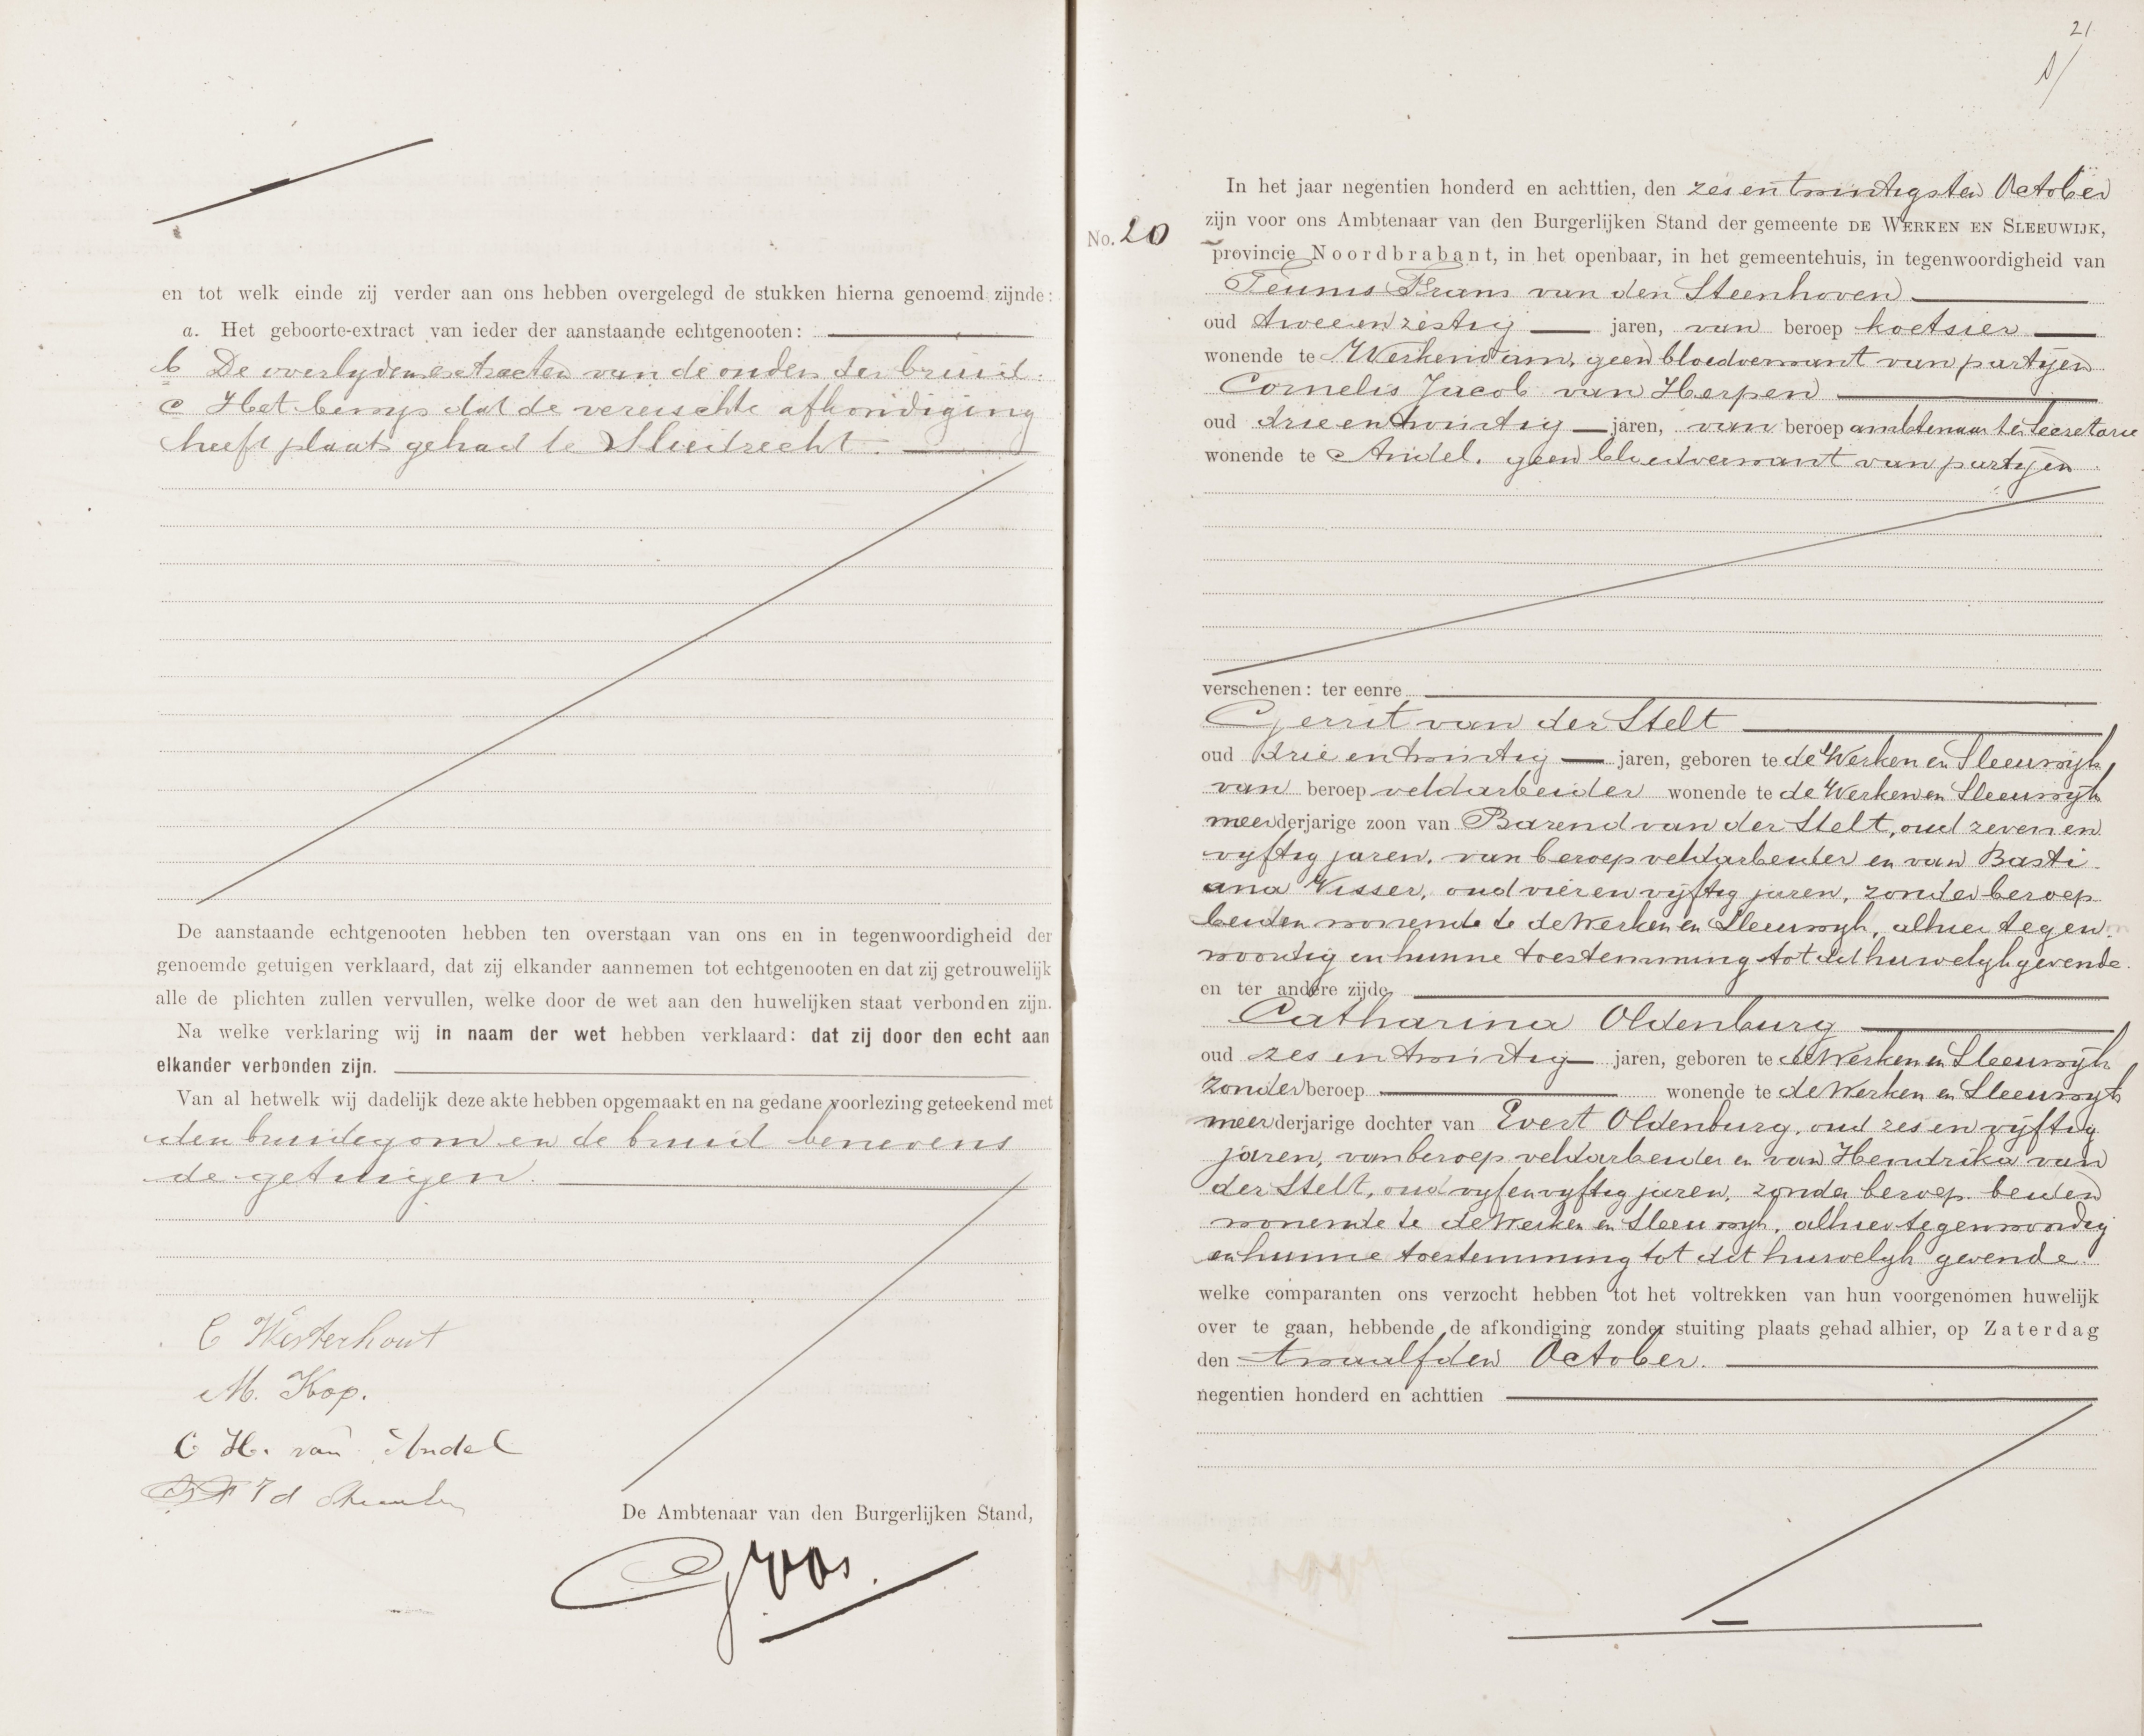 en tot welk einde zij verder aan ons hebben overgelegd de stukken hierna genoemd zijnde:
a. Het geboorte-extract van ieder der aanstaande echtgenooten:
b De overlydensextracten van de ouders der bruid.
c Het bewys dat de vereischte afkondiging
heeft plaats gehad te Sliedrecht.
De aanstaande echtgenooten hebben ten overstaan van ons en in tegenwoordigheid der
genoemde getuigen verklaard, dat zij elkander aannemen tot echtgenooten en dat zij getrouwelijk
alle de plichten zullen vervullen, welke door de wet aan den huwelijken staat verbonden zijn.
Na welke verklaring wij in naam der wet hebben verklaard: dat zij door den echt aan
elkander verbonden zijn.
Van al hetwelk wij dadelijk deze akte hebben opgemaakt en na gedane voorlezing geteekend met
den bruidegom en de bruid benevens
de getuigen.
C Westerhout
M. Kop.
C H. van Andel
De Ambtenaar van den Burgerlijken Stand,
21
No. 20
In het jaar negentien honderd en achttien, den zes en twintigsten October
zijn voor ons Ambtenaar van den Burgerlijken Stand der gemeente DE WERKEN EN SLEEUWIJK,
provincie Noordbrabant, in het openbaar, in het gemeentehuis, in tegenwoordigheid van
Teunis Frans van den Steenhoven
oud twee en zestig jaren, van beroep koetsier
wonende te Werkendam, geen bloedverwant van partyen
Cornelis Jacob van Herpen
oud drie en twintig jaren, van beroep ambtenaar ter secretarie
wonende te Andel. geen bloedverwant van partyen
verschenen: ter eenre
Gerrit van der Stelt
oud drie en twintig jaren, geboren te de Werken en Sleeuwyk,
van beroep veldarbeider wonende te de Werken en Sleeuwyk
meerderjarige zoon van Barend van der Stelt, oud zeven en
vyftig jaren, van beroep veldarbeider en van Basti-
ana Visser, oud vier en vyftig jaren, zonder beroep
beiden wonende te de Werken en Sleeuwyk, alhier tegen-
woordig en hunne toestemming tot dit huwelyk gevende.
en ter andere zijde
Catharina Oldenburg
oud zes en twintig jaren, geboren te de Werken en Sleeuwyk
zonder beroep wonende te de Werken en Sleeuwyk
meerderjarige dochter van Evert Oldenburg, oud zes en vyftig
jaren, van beroep veldarbeider en van Hendrika van
der Stelt, oud vyf en vyftig jaren, zonder beroep beiden
wonende te de Werken en Sleeuwyk, alhier tegenwoordig
en hunne toestemming tot dit huwelyk gevende.
welke comparanten ons verzocht hebben tot het voltrekken van hun voorgenomen huwelijk
over te gaan, hebbende de afkondiging zonder stuiting plaats gehad alhier, op Zaterdag
den twaalfden October.
negentien honderd en achttien